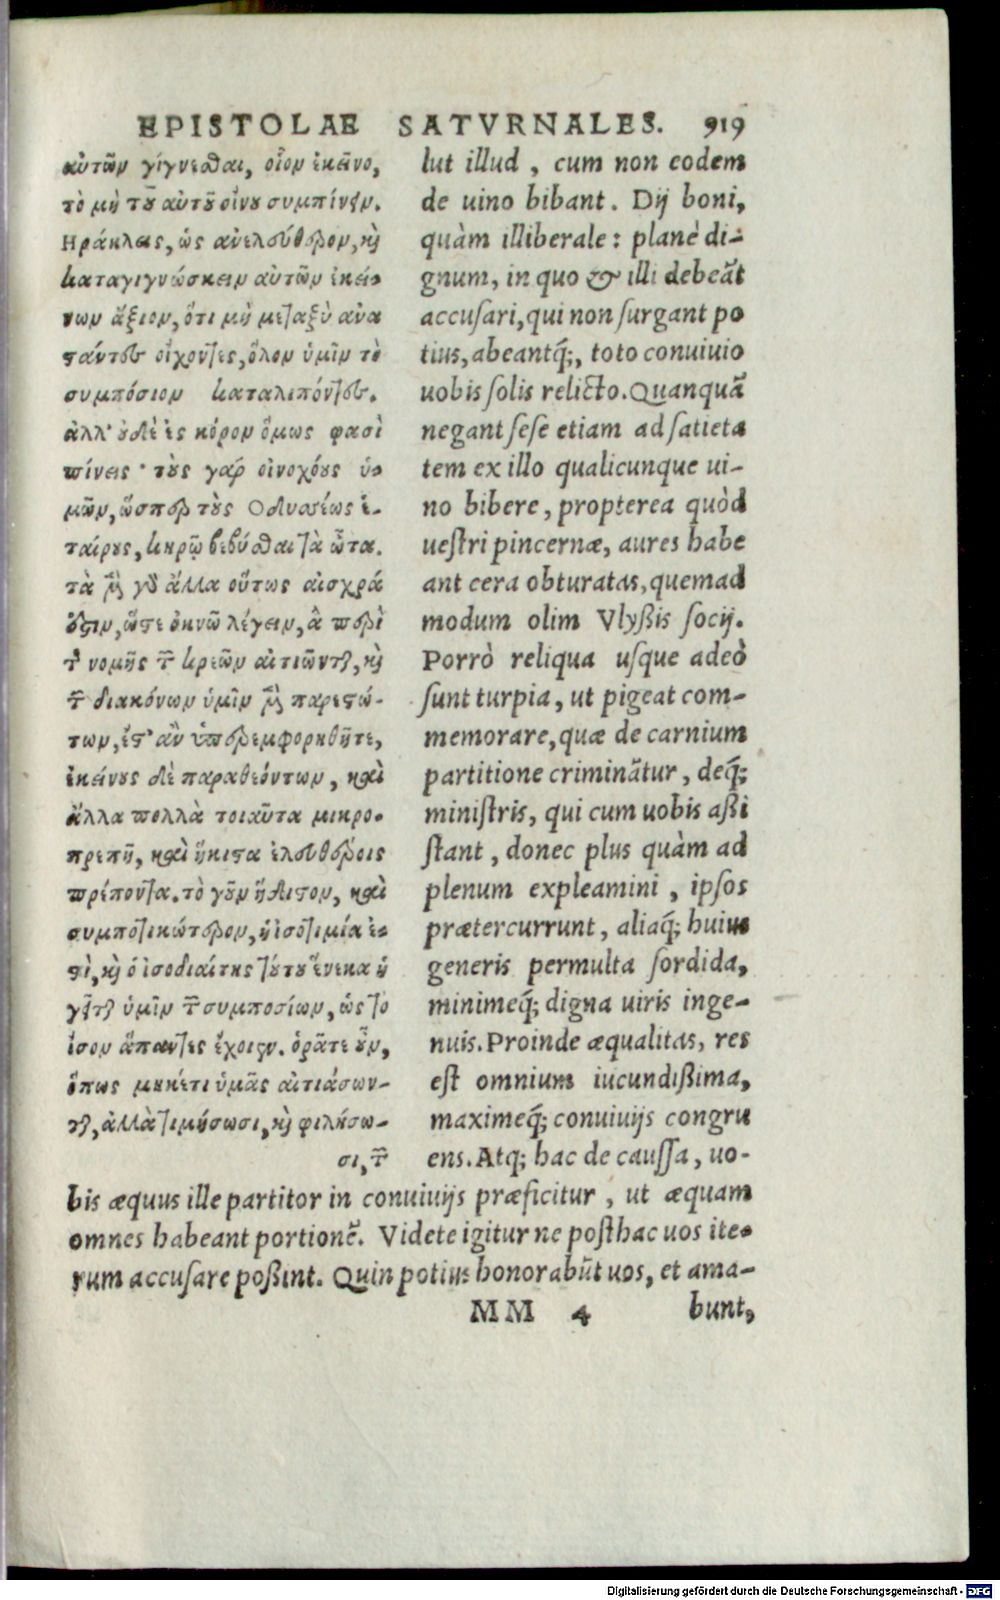 EPISTOLAE SATVRNALES. 919
αὐτῶν γίγνεσθαι, οἷον ἐκεῖνο,
τὸ μὴ τοῦ αὐτοῦ οἴνου συμπίνειν.
Ηράκλεις, ὡς ἀνελεύθερον, καὶ
καταγιγνώσκειν αὐτῶν ἐκεί-
νων ἄξιον, ὅτι μὴ μεταξὺ ἀνα
στάντες οἴχονται, ὅλον ὑμῖν τὸ
συμπόσιον καταλιπόντες.
ἀλλ' οὐδὲ ἐς κόρον ὅμως φασὶ
πίνειν· τοὺς γὰρ οἰνοχόους ὑ-
μῶν, ὥσπερ τοὺς Ὀδυσσέως ἑ-
ταίρους, κηρῷ βεβύσθαι τὰ ὦτα.
τὰ μὲν γὸ ἄλλα οὕτως αἰσχρά
ἐστιν, ὥστε ὀκνῶ λέγειν, ἃ περὶ
τ νομῆς τ κρεῶν αἰτιῶνται, καὶ
τ διακόνων ὑμῖν μὲν παρεστώ-
των, ἔστ' ἂν ὑπερεμφορηθῆτε,
ἐκείνους δὲ παραθεόντων, καὶ
ἄλλα πολλὰ τοιαῦτα μικρο-
πρεπῆ, καὶ ἥκιστα ἐλευθέροις
πρέποντα. τὸ γοῦν ἥδιστον, καὶ
συμποτικώτερον, ἡ ἰσοτιμία ἐ-
στὶ, καὶ ὁ ἰσοδιαίτης τούτου ἕνεκα ἡ
γεῖται ὑμῖν τ συμποσίων, ὡς τὸ
ἴσον ἅπαντες ἔχοιεν. ὁρᾶτε οὖν,
ὅπως μηκέτι ὑμᾶς αἰτιάσων-
ται, ἀλλὰ τιμήσωσι, καὶ φιλήσω-
σι, τ
lut illud, cum non eodem
de uino bibant. Dij boni,
quàm illiberale: planè di-
gnum, in quo & illi debeāt
accusari, qui non surgant po
tius, abeantq́;, toto conuiuio
uobis solis relicto. Quanquā
negant sese etiam ad satieta
tem ex illo qualicunque ui-
no bibere, propterea quòd
uestri pincernæ, aures habe
ant cera obturatas, quemad
modum olim Vlyßis socij.
Porrò reliqua usque adeò
sunt turpia, ut pigeat com-
memorare, quæ de carnium
partitione criminātur, deq́;
ministris, qui cum uobis aßi
stant, donec plus quàm ad
plenum expleamini, ipsos
prætercurrunt, aliaq́; huius
generis permulta sordida,
minimeq́; digna uiris inge-
nuis. Proinde æqualitas, res
est omnium iucundißima,
maximeq́; conuiuijs congru
ens. Atq; hac de caussa, uo-
bis æquus ille partitor in conuiuijs præficitur, ut æquam
omnes habeant portionē. Videte igitur ne posthac uos ite-
rum accusare poßint. Quin potius honorabūt uos, et ama-
MM 4 bunt,
Digitalisierung gefördert durch die Deutsche Forschungsgemeinschaft - DFG